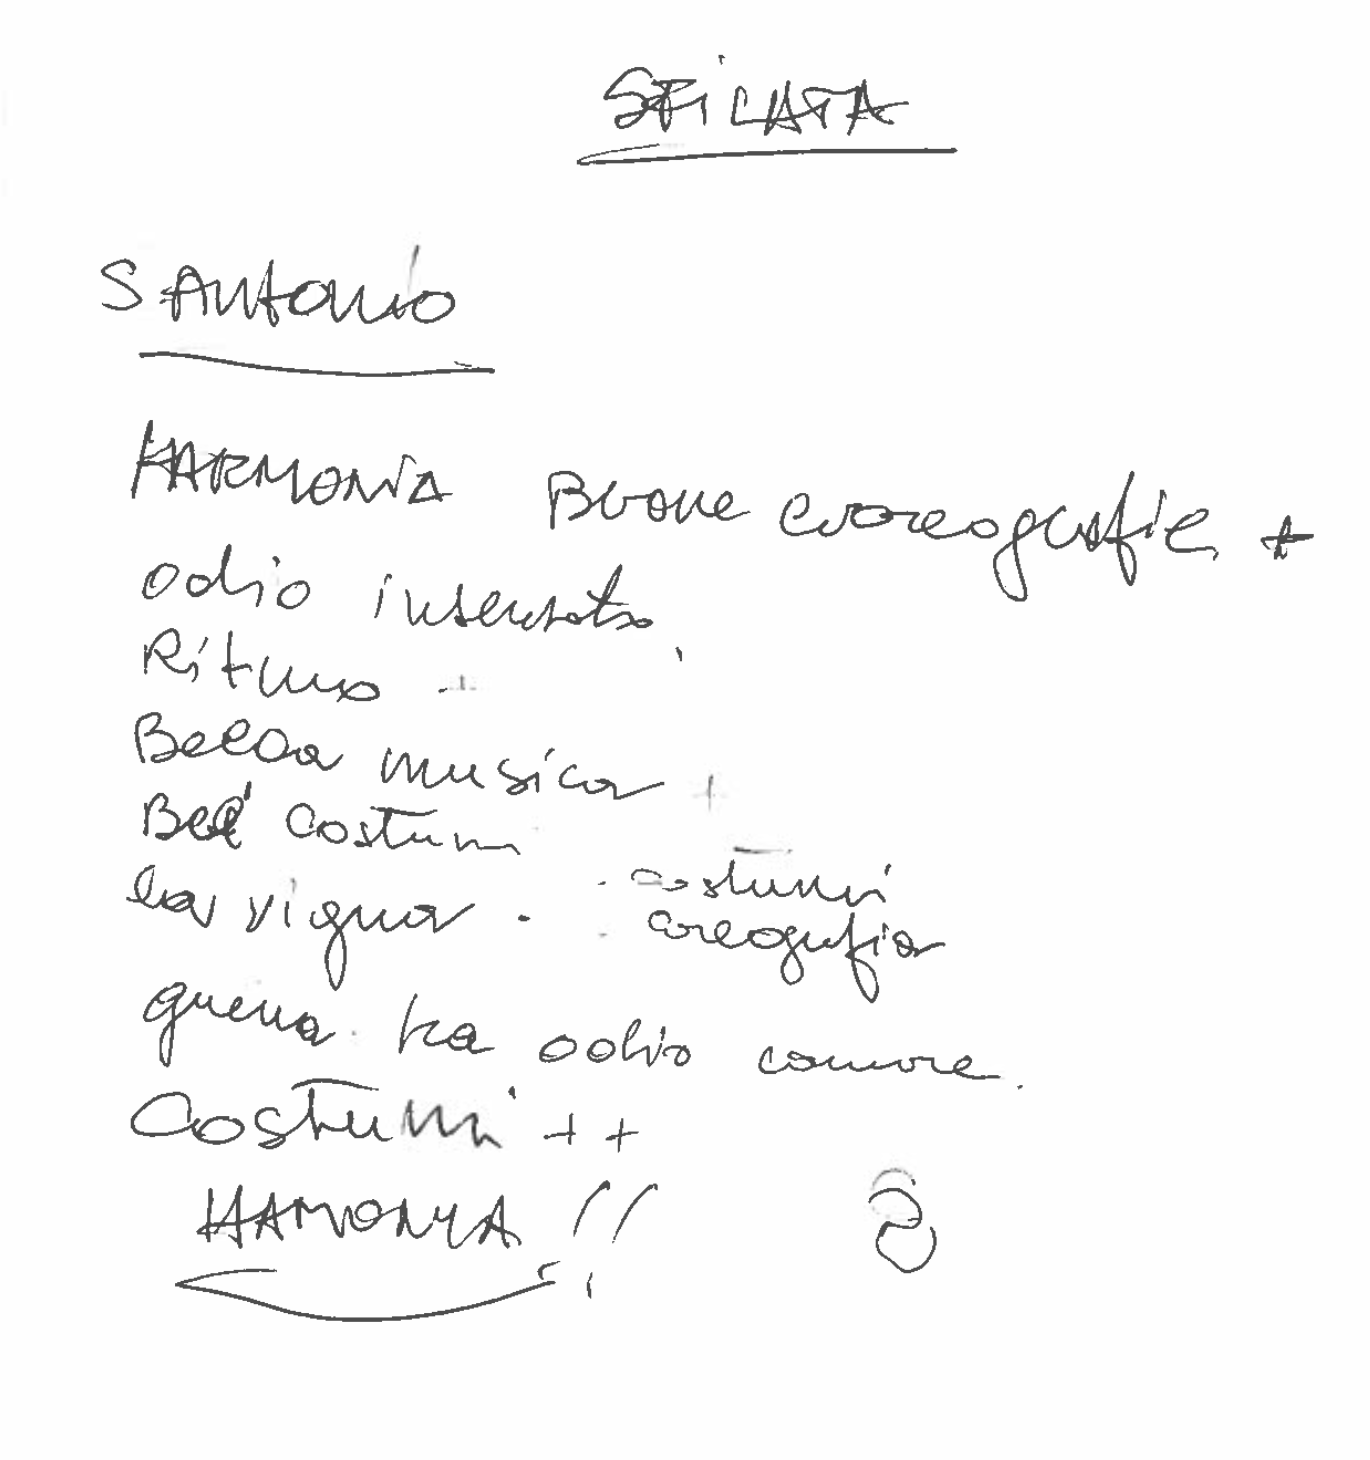 SFiLATA
S. Antonio
HARMONIA Buone coreografie +
odio insensato.
Ritmo +
Bella musica +
Bei costumi
La vigna . - costumi
- coreografia
guerra tra odio e amore.
Costumi ++
HAMONIA !!
8